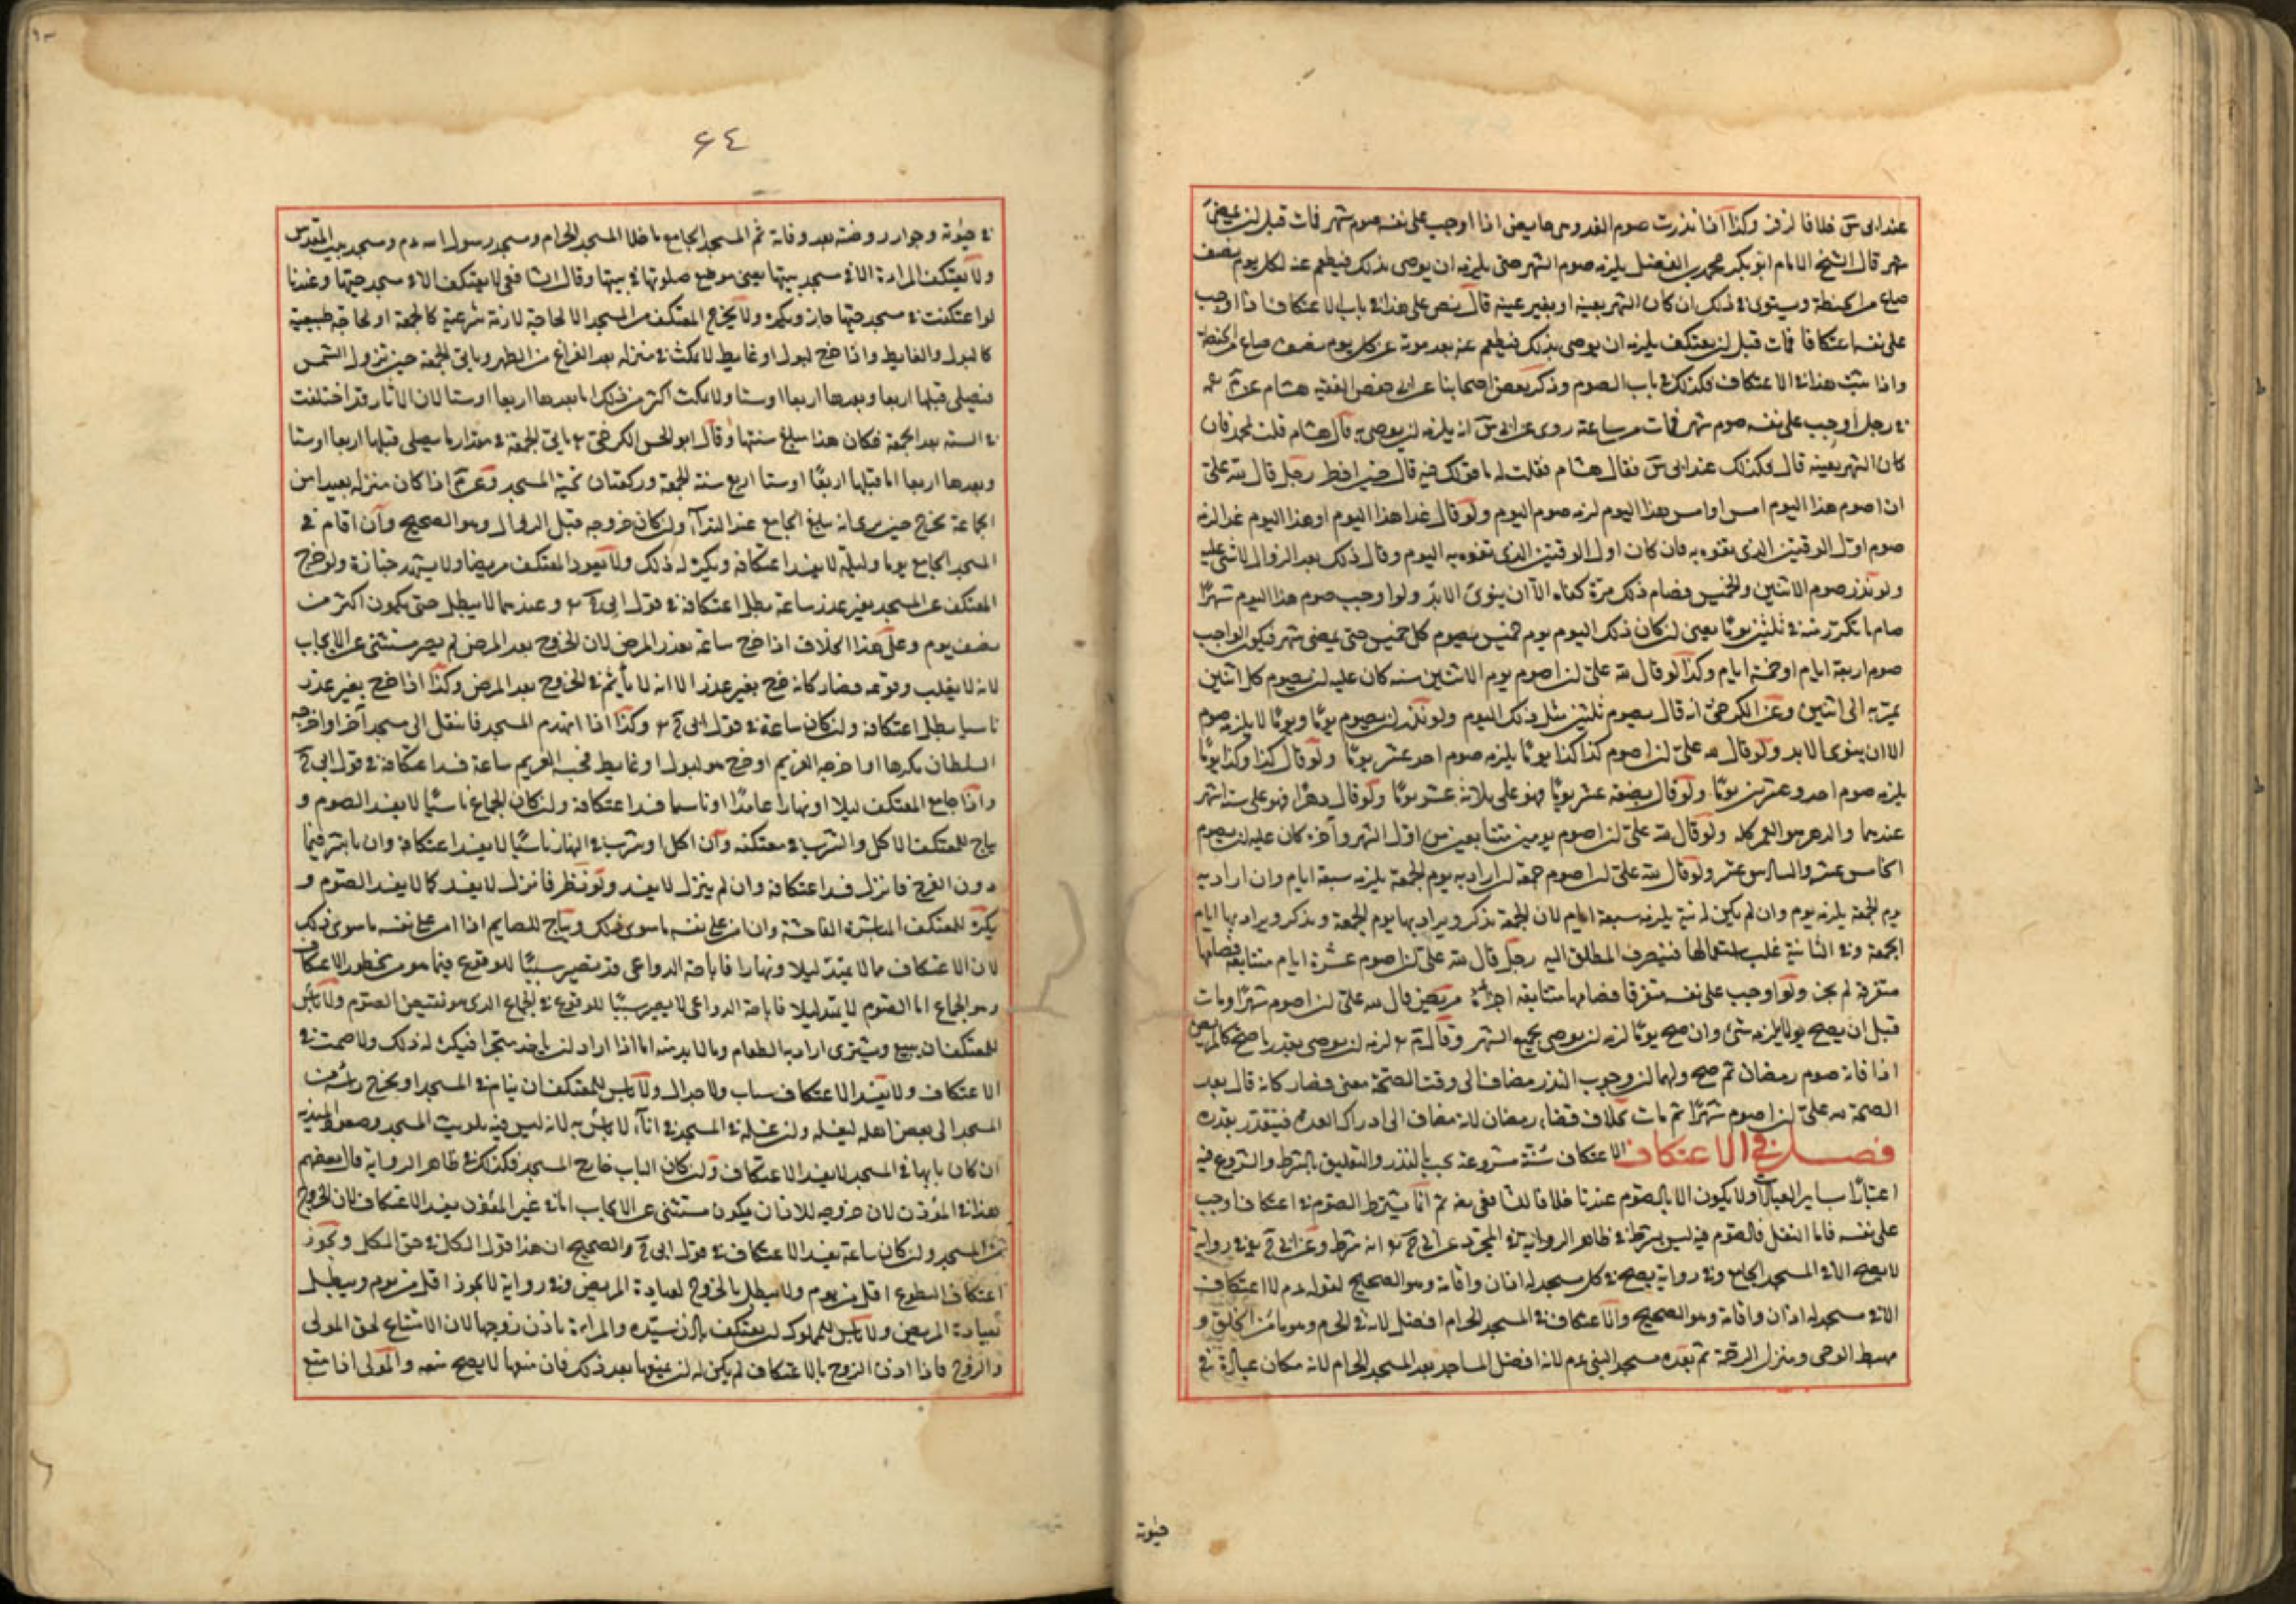 عند ابى س خلافا لزفر وكذا اذا نذرت صوم الغد وهى حايض اذا اوجب على نفسه صوم شهر فمات قبل ان يمضى
شهر قال الشيخ الامام ابو بكر محمد بن الفضل يلزمه صوم الشهر حتى يلزمه ان يوصى بذلك فيطعم عنه لكل يوم نصف
صاع من الحنطة ويستوى فى ذلك ان كان الشهر بعينه او بغير عينه قال نص على هذا فى باب الاعتكاف اذا اوجب
على نفسه اعتكافا فمات قبل ان يعتكف يلزمه ان يوصى بذلك فيطعم عنه بعد موته عن كل يوم نصف صاع من الحنطة
واذا ثبت هذا فى الاعتكاف فكذلك فى باب الصوم وذكر بعض اصحابنا عن ابى حفص الفقيه هشام عن
فى رجل اوجب على نفسه صوم شهر فمات من ساعته روى عن ابى س انه يلزمه ان يوصى به قال هشام قلت لمحمد فان
كان الشهر بعينه قال وكذلك عند ابى س فقال هشام فقلت له ما قولك فيه قال رجل قال لله على
ان اصوم هذا اليوم امس او امس هذا اليوم لزمه صوم اليوم ولو قال غدا هذا اليوم او هذا اليوم غدا لزمه
صوم اول الوقتين الذى تفوه به فان كان اول الوقتين الذى تفوه به اليوم وقال ذلك بعد الزوال لا شئ عليه
ولو نذر صوم الاثنين والخميس فصام ذلك مرة كفاه الا ان ينوى الابد ولو اوجب صوم هذا اليوم شهرا
صام ما تكرر منه فى ثلثين يوما يعنى ان كان ذلك اليوم يوم خميس يصوم كل خميس حتى يمضى شهر فيكون الواجب
صوم اربعة ايام او خمسة ايام وكذا لو قال لله على ان اصوم يوم الاثنين سنه كان عليه ان يصوم كل اثنين
يمر به الى اثنين وعن الكرخى انه قال يصوم ثلثين مثل ذلك اليوم ولو نذر ان يصوم يوما ويوما لا يلزمه صوم
الا ان ينوى الابد ولو قال لله على ان اصوم كذا كذا يوما يلزمه صوم احد عشر يوما ولو قال كذا وكذا يوما
يلزمه صوم احد وعشرين يوما ولو قال بضعه عشر يوما فهو على ثلاثه عشر يوما ولو قال دهرا فهو على سته اشهر
عندهما والدهر هو العمر كله ولو قال لله على ان اصوم يومين متتابعين من اول الشهر وآخره كان عليه ان يصوم
الخامس عشر والسادس عشر ولو قال لله على ان اصوم جمعة ان اراد به يوم الجمعة يلزمه سبعة ايام وان اراد به
يوم الجمعة يلزمه يوم وان لم يكن له نية يلزمه سبعة ايام لان الجمعة تذكر ويراد بها يوم الجمعة وتذكر ويراد بها ايام
الجمعة وفى الثانية غلب استعمالها فينصرف المطلق اليه رجل قال لله على ان اصوم عشرة ايام متتابعة فصامها
متفرقة لم يجز ولو اوجب على نفسه متفرقا فصامها متتابعه اجزأه مريض قال لله على ان اصوم شهرا ومات
قبل ان يصح لا يلزمه شئ وان صح يوما لزمه ان يوصى بجميع الشهر وقال م لزمه ان يوصى بقدر ما صح كالمريض
اذا فاته صوم رمضان ثم صح ولهما ان وجوب النذر مضاف الى وقت الصحة معنى فصار كانه قال بعد
الصحة لله على ان اصوم شهرا ثم مات بخلاف قضاء رمضان لانه مضاف الى ادراك العدة فيتقدر بقدره
فصل فى الاعتكاف الاعتكاف سنة مشروعة يجب بالنذر والتعليق بالشرط والشروع فيه
اعتبارا بساير العبادات ولا يكون الا بالصوم عندنا خلافا للشافعى ثم انما يشترط الصوم فى اعتكاف اوجب
على نفسه فاما النفل فالصوم فيه ليس بشرط فى ظاهر الرواية وفى المجرد عن ابى ح انه شرط وعن ابى ح فى رواية
لا يصح الا فى المسجد الجامع وفى رواية يصح فى كل مسجد له اذان واقامة وهو الصحيح لقوله عم لا اعتكاف
الا فى مسجد له اذان واقامة وهو الصحيح والاعتكاف فى المسجد الحرام افضل لانه فى الحرم وهو مأمن الخلق و
مهبط الوحى ومنزل الرحمة ثم بعده مسجد النبى عم لانه افضل المساجد بعد المسجد الحرام لانه مكان عبادته فى
حيوته
٦٤
فى حيوته وجوار روضته بعد وفاته ثم المسجد الجامع ما خلا المسجد الحرام ومسجد رسول الله عم ومسجد بيت المقدس
ولا يعتكف المراة الا فى مسجد بيتها يعنى موضع صلوتها فى بيتها وقال الشافعى لا يعتكف الا فى مسجد حيها وعندنا
لو اعتكفت فى مسجد حيها جاز ويكره ولا يخرج المعتكف من المسجد الا لحاجة لازمة شرعية كالجمعة او لحاجة طبيعية
كالبول والغايط واذا خرج لبول او غايط لا يمكث فى منزله بعد الفراغ من الطهر وياتى الجمعة حين تزول الشمس
فيصلى قبلها اربعا وبعدها اربعا او ستا ولا يمكث اكثر من ذلك اما بعدها اربعا او ستا لان الاثار قد اختلفت
فى السنه بعد الجمعة فكان هذا مبلغ سنتها وقال ابو الحسن الكرخى ياتى الجمعة فى مقدار ما يصلى قبلها اربعا او ستا
وبعدها اربعا اما قبلها اربعا او ستا اربع سنة للجمعة وركعتان تحية المسجد وعن م اذا كان منزله بعيدا من
الجماعة يخرج حين يرى انه يبلغ الجامع عند النداء وان كان خروجه قبل الزوال وهو الصحيح وان اقام فى
المسجد الجامع يوما وليلة لا يفسد اعتكافه ويكره له ذلك ولا يعود المعتكف مريضا ولا يشهد جنازة ولو خرج
المعتكف عن المسجد بغير عذر ساعة بطل اعتكافه فى قول ابى ح وعندهما لا يبطل حتى يكون اكثر من
نصف يوم وعلى هذا الخلاف اذا خرج ساعة بعذر المرض لان الخروج بعذر المرض لم يصر مستثنى عن الايجاب
لانه لا يغلب وقوعه فصار كانه خرج بغير عذر الا انه لا يأثم فى الخروج بعد المرض وكذا اذا خرج بغير عذر
ناسيا بطل اعتكافه وان كان ساعة فى قول ابى ح وكذا اذا انهدم المسجد فانتقل الى مسجد آخر او اخرجه
السلطان مكرها او اخرجه الغريم او خرج هو لبول او غايط فحبسه الغريم ساعة فسد اعتكافه فى قول ابى ح
واذا جامع المعتكف ليلا او نهارا عامدا او ناسيا فسد اعتكافه وان كان الجماع ناسيا لا يفسد الصوم و
يباح للمعتكف الاكل والشرب فى معتكفه وان اكل او شرب فى النهار ناسيا لا يفسد اعتكافه وان باشر فيما
دون الفرج فانزل فسد اعتكافه وان لم ينزل لا يفسد ولو نظر فانزل لا يفسد كما لا يفسد الصوم و
يكره للمعتكف المباشرة الفاحشة وان امن على نفسه ما سوى ذلك ويباح للصايم اذا امن على نفسه ما سوى ذلك
لان الاعتكاف مما لا يمتد ليلا ونهارا فاباحة الدواعى قد تصير سببا للوقوع فيما هو من محظور الاعتكاف
وهو الجماع اما الصوم لا يمتد ليلا فاباحة الدواعى لا يصير سببا للوقوع فى الجماع الذى هو نقيض الصوم ولا بأس
للمعتكف ان يبيع ويشترى اراد به الطعام وما لا بد منه اما اذا اراد ان ياخذ متجرا فيكره له ذلك ولا صمت فى
الاعتكاف ولا يفسد الاعتكاف سباب ولا جدال ولا بأس للمعتكف ان ينام فى المسجد او يخرج رأسه من
المسجد الى بعض اهله ليغسله وان غسله فى المسجد فى اناء لا بأس به لانه ليس فيه تلويث المسجد وصعود الميذنه
ان كان بابها فى المسجد لا يفسد الاعتكاف وان كان الباب خارج المسجد فكذلك فى ظاهر الرواية قال بعضهم
هذا فى المؤذن لان خروجه للاذان يكون مستثنى عن الايجاب اما فى غير المؤذن يفسد الاعتكاف لان الخروج
من المسجد وان كان ساعة يفسد الاعتكاف فى قول ابى ح والصحيح ان هذا قول الكل فى حق الكل ويجوز
اعتكاف التطوع اقل من يوم ولا يبطل بالخروج لعيادة المريض وفى رواية لا يجوز اقل من يوم ويبطل
بعيادة المريض ولا بأس للمملوك ان يعتكف باذن سيده والمراة باذن زوجها لان الامتناع لحق المولى
والزوج فاذا اذن الزوج بالاعتكاف لم يكن له ان يمنعها بعد ذلك فان منعها لا يصح منعه والمولى اذا منع